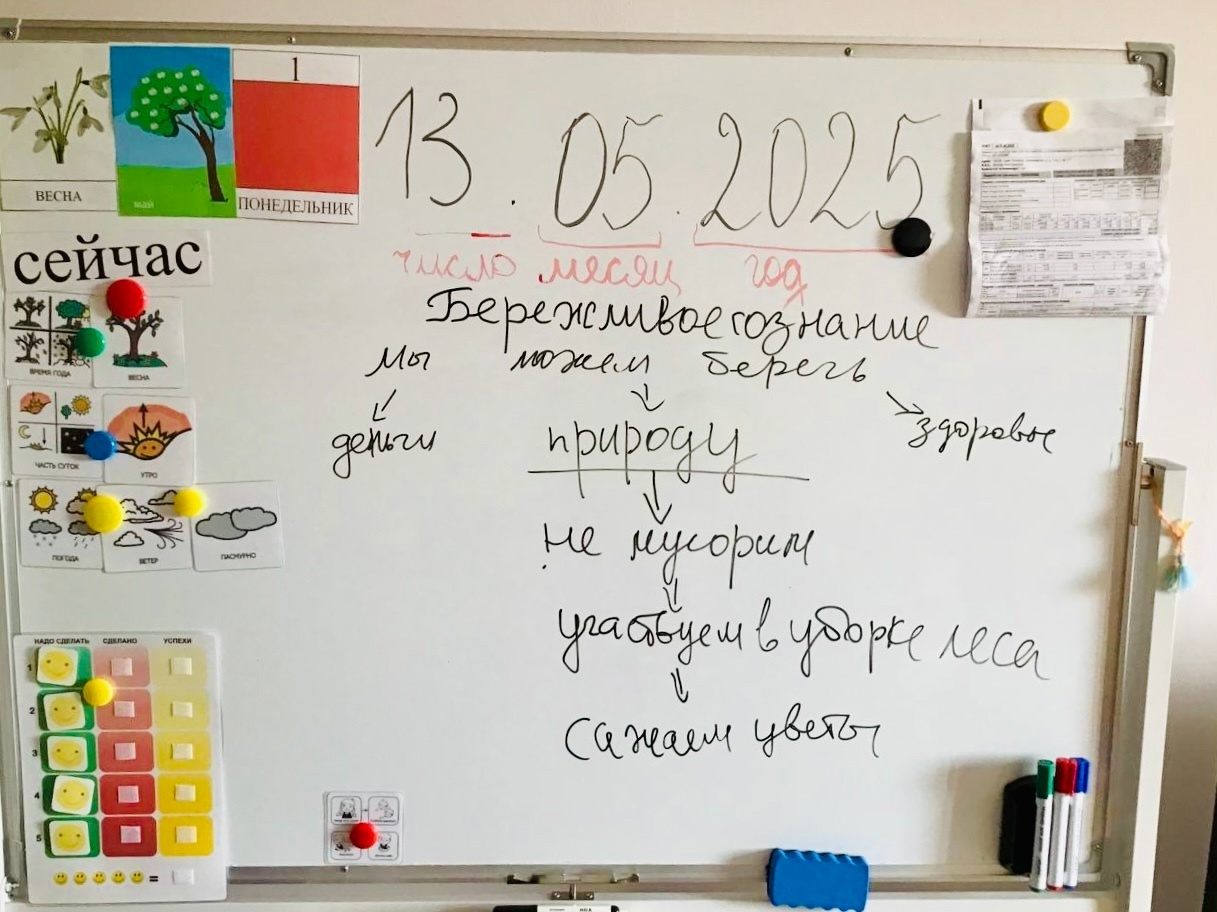 ВЕСНА
МАЙ
1
ПОНЕДЕЛЬНИК
13.05.2025
число месяц год
сейчас
Бережливое сознание
мы можем беречь
деньги природу здоровье
не мусорим
участвуем в уборке леса
сажаем цветы
ВРЕМЯ ГОДА
ВЕСНА
ЧАСТЬ СУТОК
УТРО
ПОГОДА
ВЕТЕР
ПАСМУРНО
НАДО СДЕЛАТЬ СДЕЛАНО УСПЕХИ
1
2
3
4
5
=